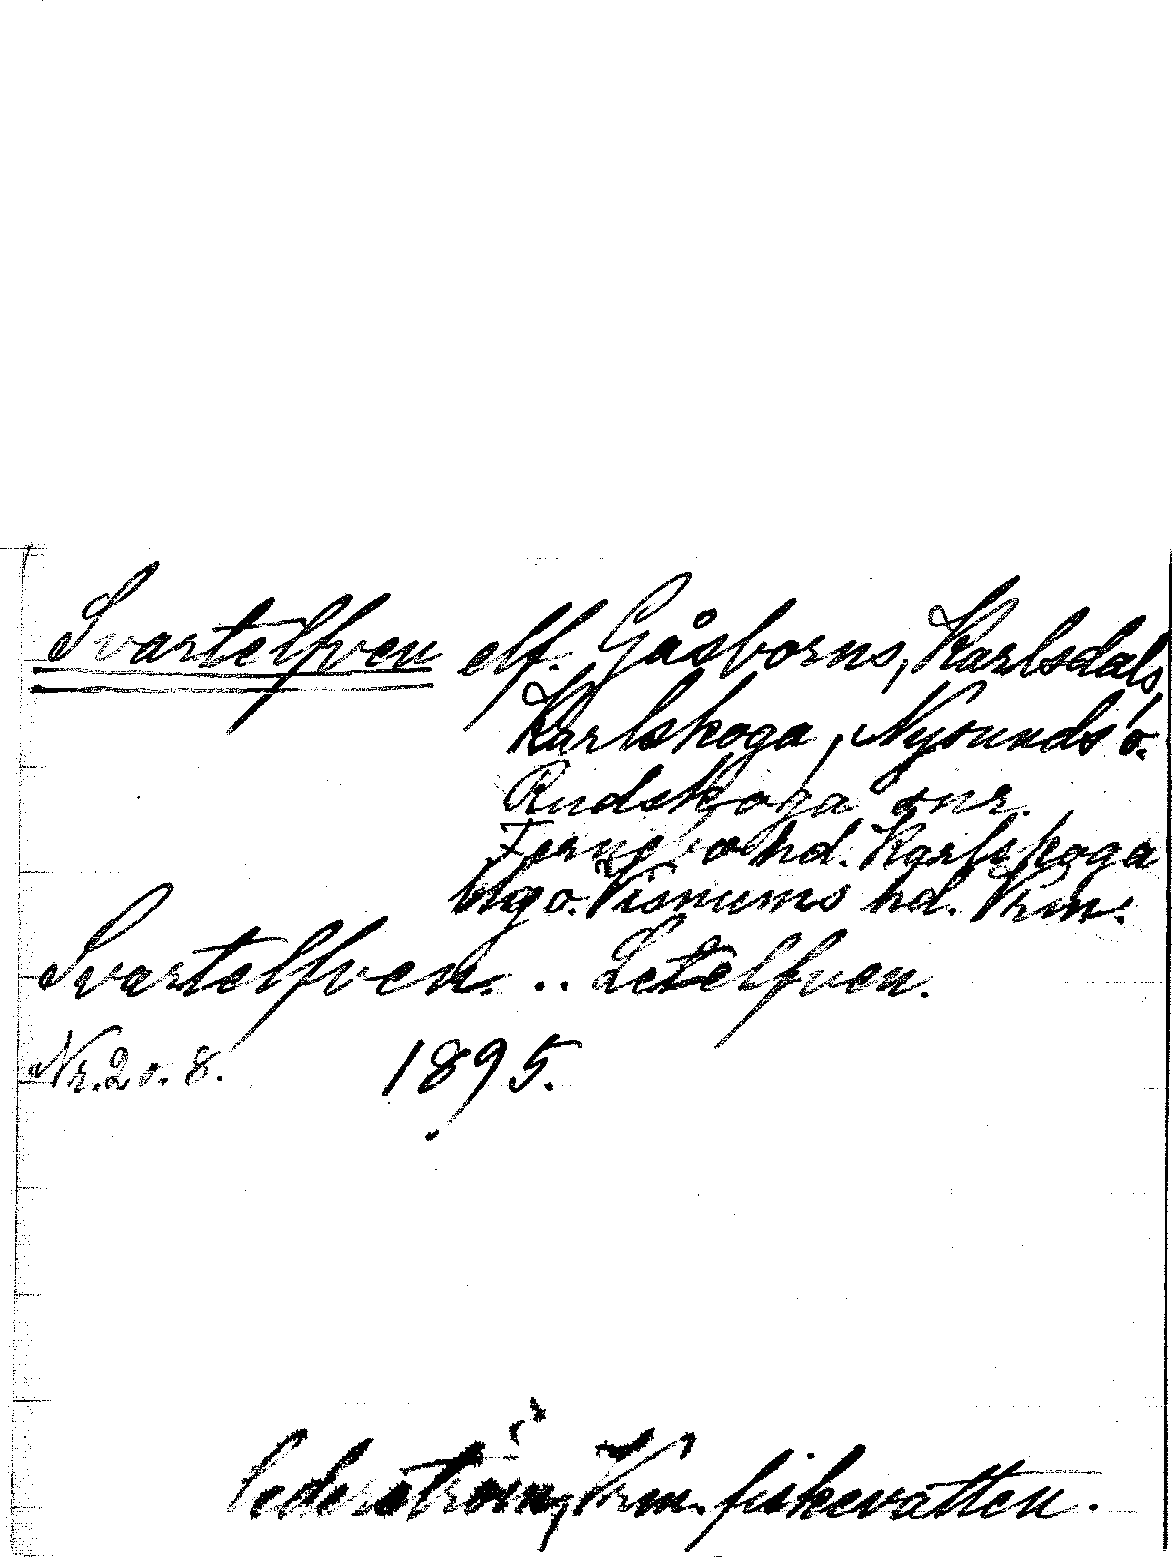 Svartelfven elf. Gåsborns, Karlsdals,
Karlskoga, Nysunds o.
Rudskoga snr.
Fernebo hd. Karlskoga
bhg o. Visnums hd. Vrm.
Svartelfven. .. Letelfven.
Nr. 2 o. 8. 1895.
Cederström, Vrm. fiskevatten.